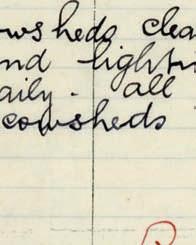 owsheds clea
nd lightn
aily. all
cowsheds